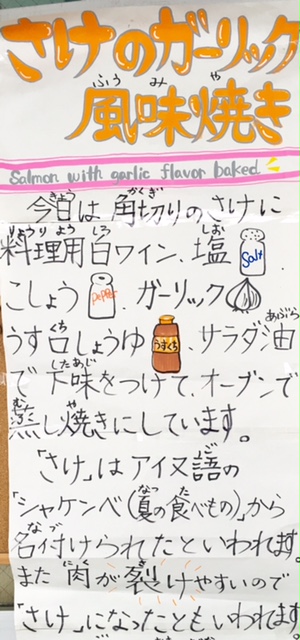 さけのガーリック
風味焼き
Salmon with garlic flavor baked
今日は角切りのさけに
料理用白ワイン、塩
Salt
こしょう
PePPer
、ガーリック
うす口しょうゆ
うすくち
、サラダ油
で下味をつけて、オーブンで
蒸し焼きにしています。
「さけ」はアイヌ語の
「シャケンベ(夏の食べもの)」から
名付けられたといわれます。
また肉が裂けやすいので
「さけ」になったともいわれます